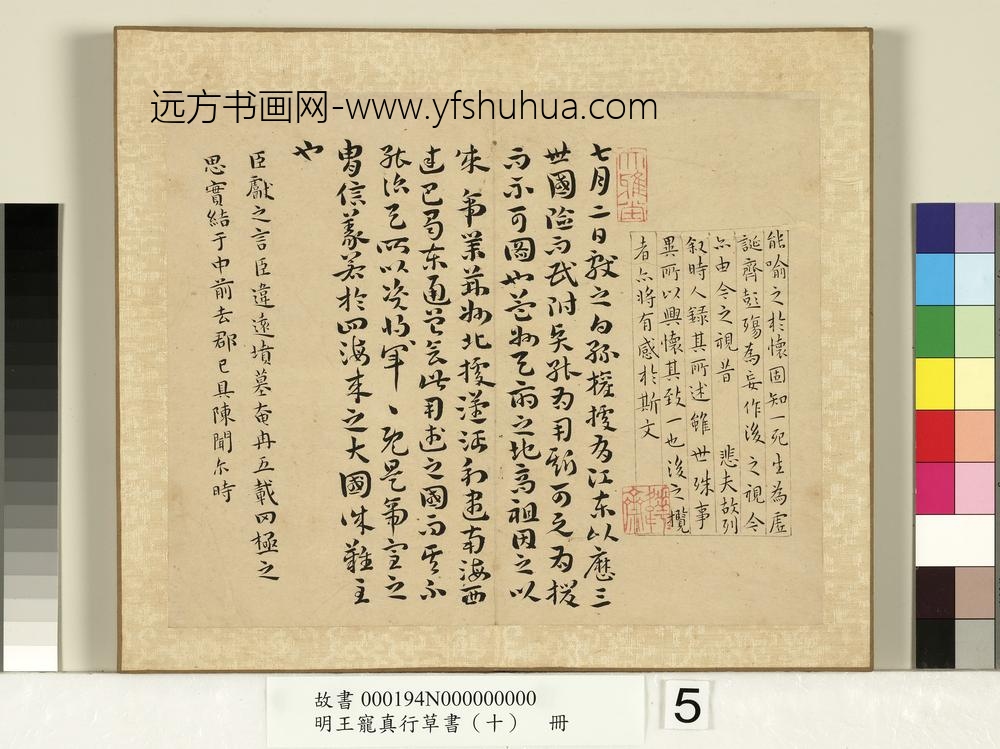 远方书画网-www.yfshuhua.com
能喻之於懷固知一死生為虛
誕齊彭殤為妄作後之視今
亦由今之視昔 悲夫故列
敘時人錄其所述雖世殊事
異所以興懷其致一也後之攬
者亦將有感於斯文
大雅堂
七月二日獻之白孫權據有江東以歷三
世國險而民附矣能為用斯可之為援
而不可圖也益州天府之地高祖因之以
來帝業荊州北據漢沔利盡南海西
連巴蜀東通吳會此用武之國而其不
能治天所以資將軍〻既是帝室之
冑信義著於四海來之大國誰難主
也
臣獻之言臣違遠墳墓奄冉五載罔極之
思實結于中前去郡已具陳聞尔時
故書 000194N000000000
明王寵真行草書（十） 冊
5